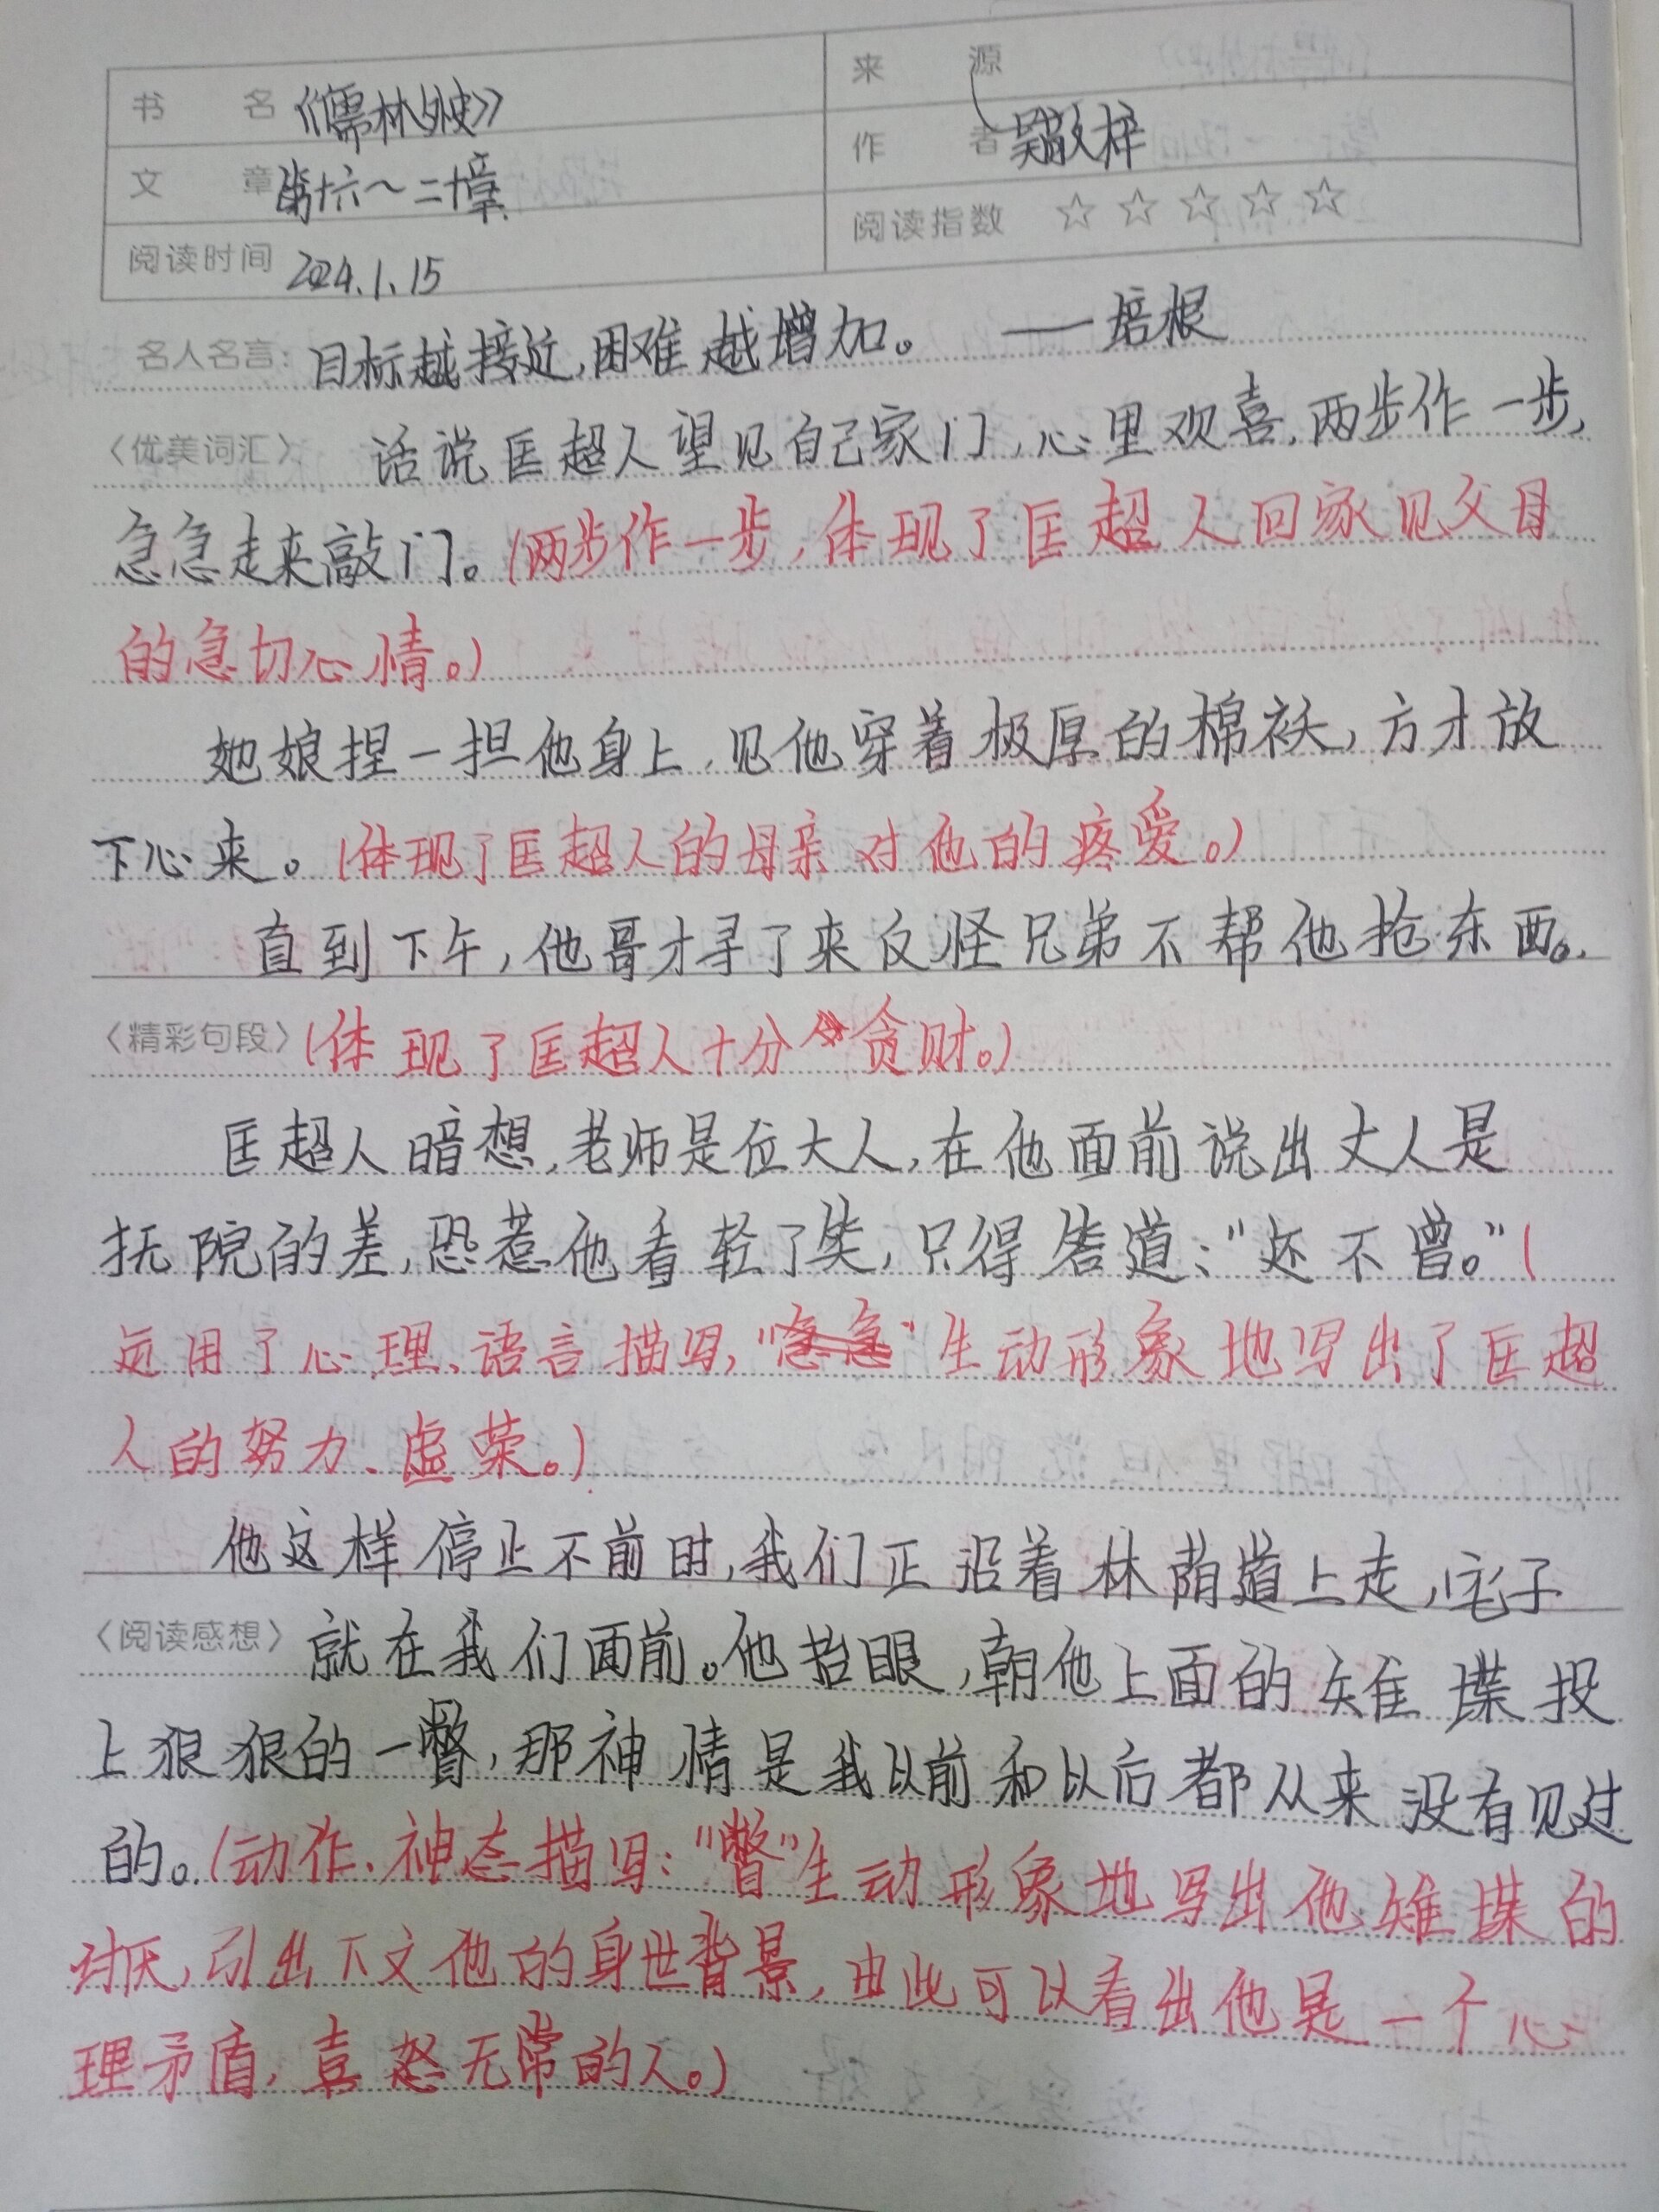 书 名 《儒林外史》
来 源
文 章 第十六～二十章
作 者 吴敬梓
阅读时间 2024.1.15
阅读指数 ☆ ☆ ☆ ☆ ☆
名人名言: 目标越接近,困难越增加。 ——培根
〈优美词汇〉 话说匡超人望见自己家门,心里欢喜,两步作一步,
急急走来敲门。(两步作一步,体现了匡超人回家见父母
的急切心情。)
她娘捏一担他身上,见他穿着极厚的棉袄,方才放
下心来。(体现了匡超人的母亲对他的疼爱。)
直到下午,他哥才寻了来反怪兄弟不帮他抢东西。
〈精彩句段〉 (体现了匡超人十分贪财。)
匡超人暗想,老师是位大人,在他面前说出丈人是
抚院的差,恐惹他看轻了笑,只得答道:“还不曾。”(
运用了心理、语言描写,“急急”生动形象地写出了匡超
人的努力、虚荣。)
他这样停止不前时,我们正沿着林荫道上走,宅子
〈阅读感想〉 就在我们面前。他抬眼,朝他上面的雉堞投
上狠狠的一瞥,那神情是我以前和以后都从来没有见过
的。(动作、神态描写:“瞥”生动形象地写出他雉堞的
讨厌,引出下文他的身世背景,由此可以看出他是一个心
理矛盾,喜怒无常的人。)